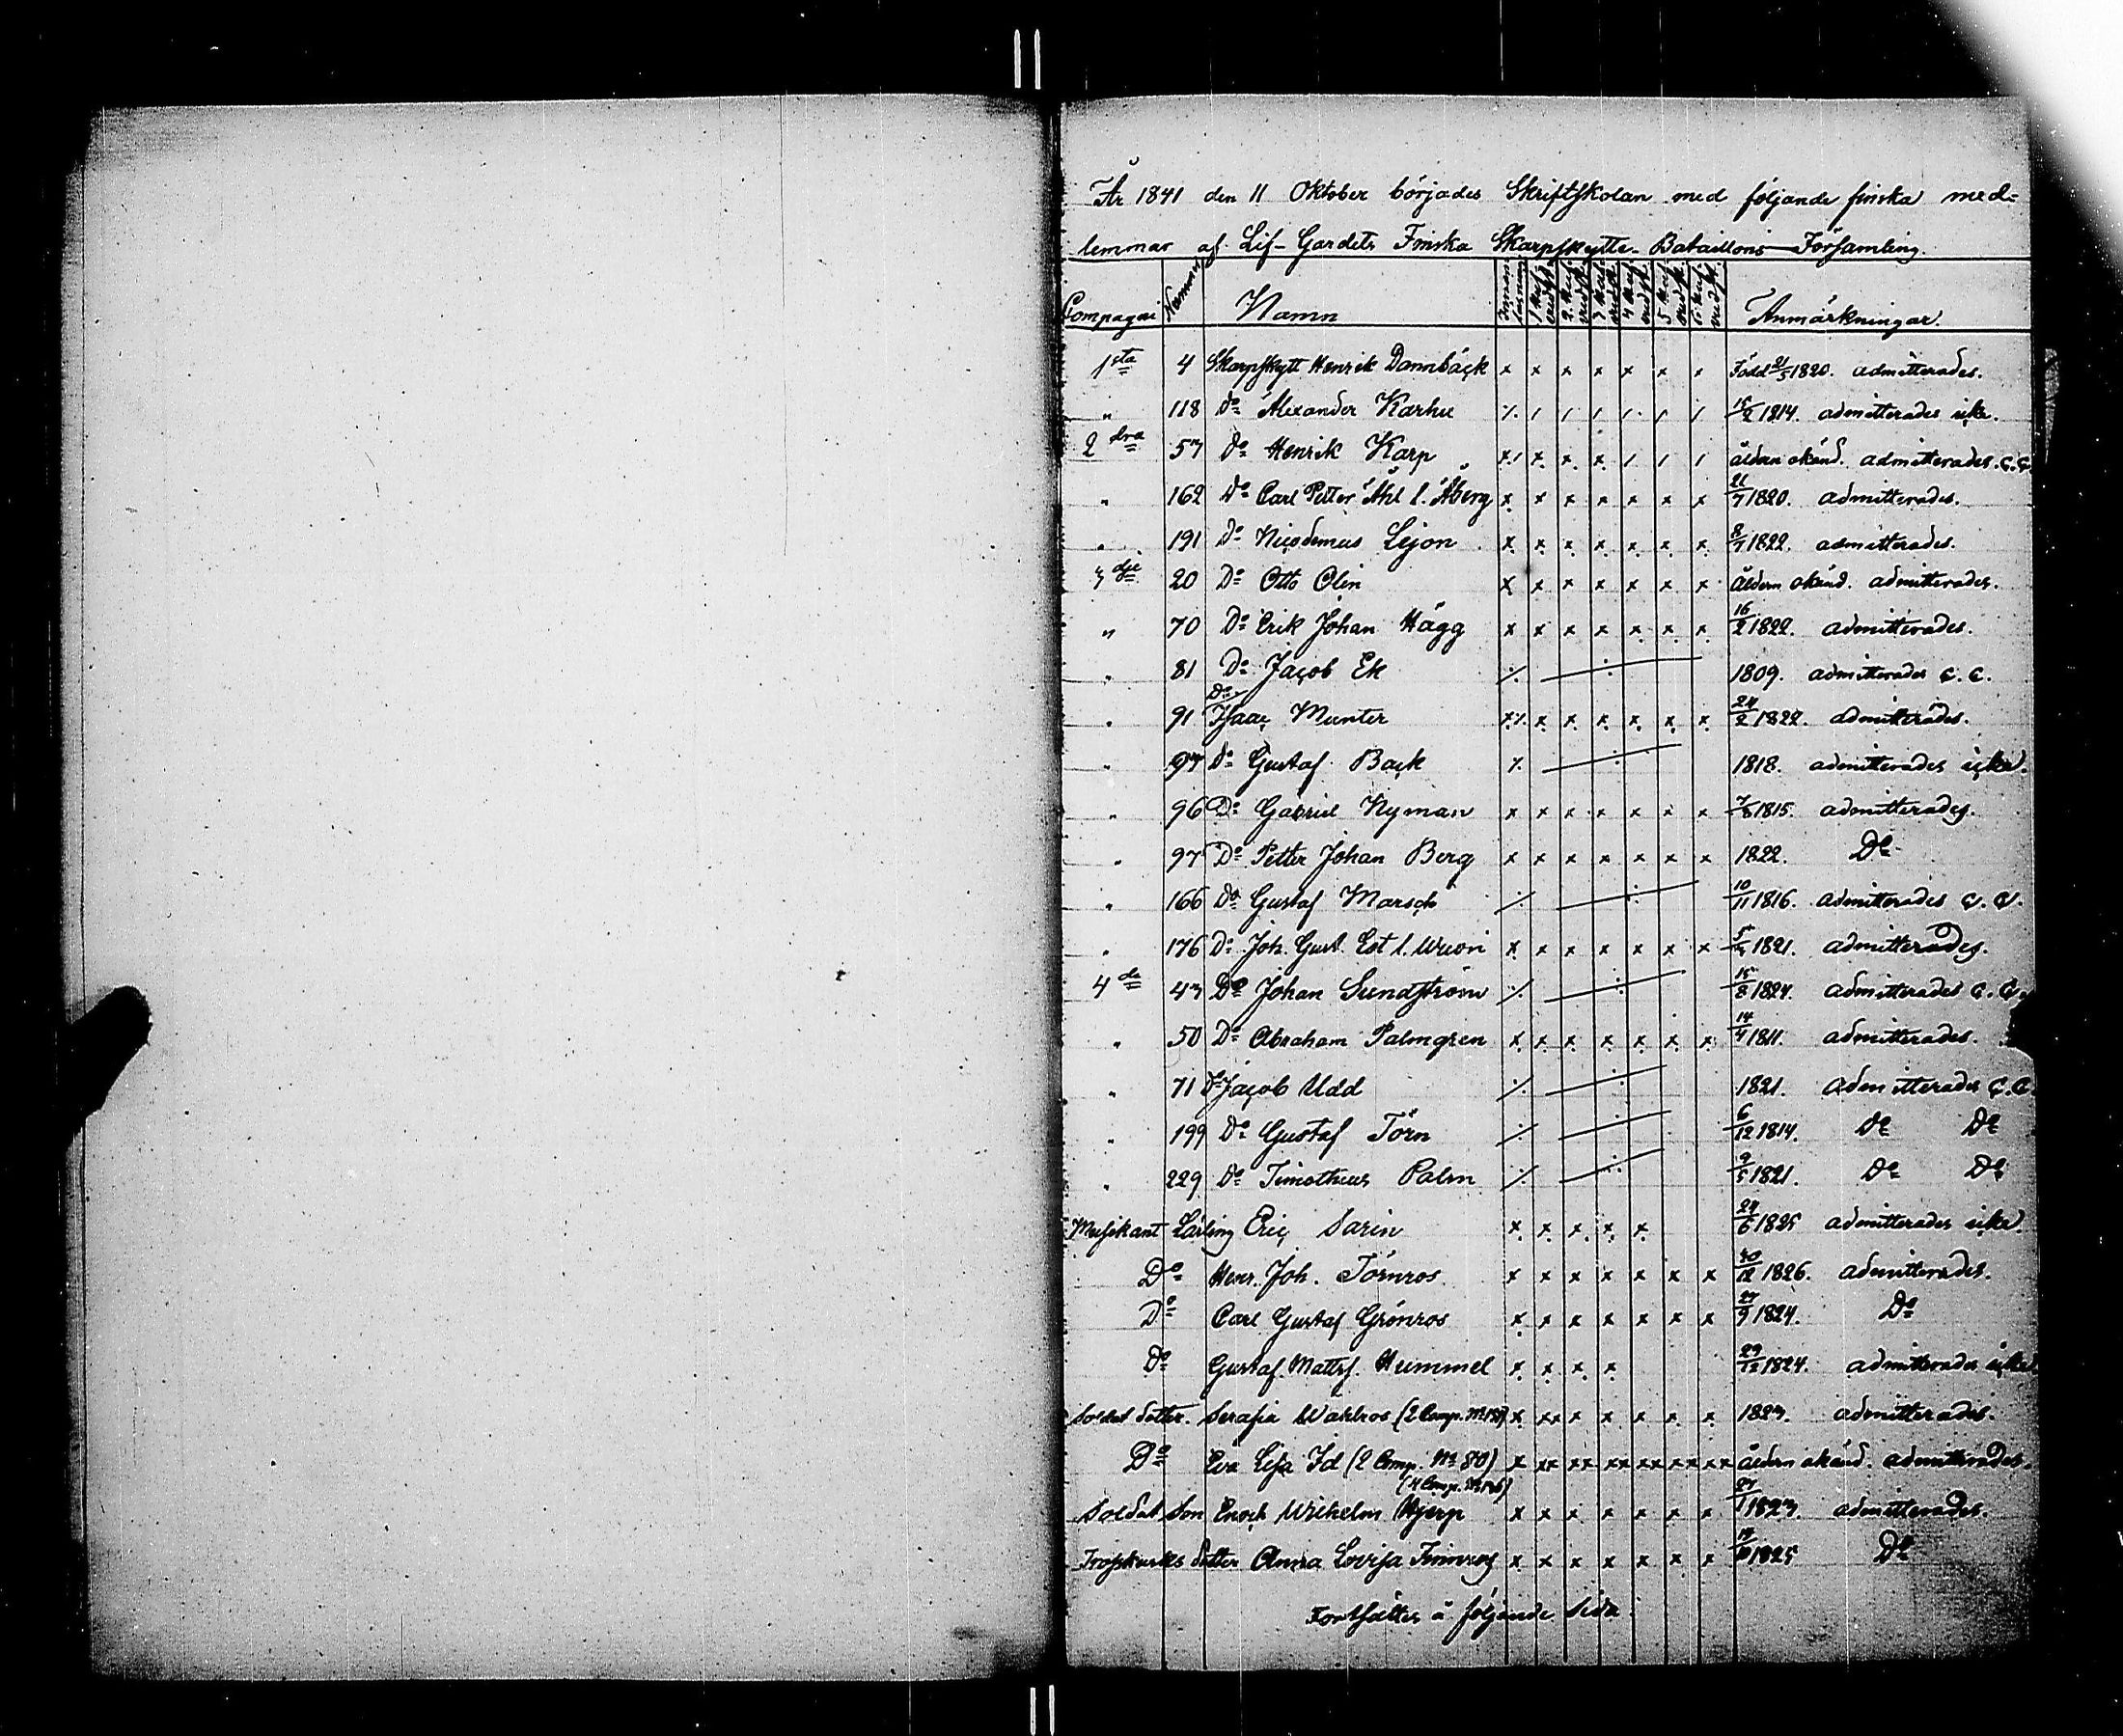 År 1841 den 11 Oktober börjades Skriftskolan med följande finska med=
lemmar af Lif-Gardets Finska Skarpskytte Bataillons Församling.
Compagni Nummer Namn Innan läsning 1 Huf. 2. Huf. 3 Huf. 4 Huf. 5 Huf. 6. Huf. Anmärkningar.
1sta 4 Skarpskytt Henrik Dannbäck x x x x x x x Född 21/5 1820. admitterades.
" 118 Do Alexander Karhu ⁒ / / / / / / 15/2 1814. admitterades icke.
2dra 57 Do Henrik Karp x/ x x x / / / åldern okänd. admitterades. c.c.
" 162 Do Carl Petter Åhl l. Åberg x x x x x x x 21/7 1820. admitterades.
" 191 Do Nicodemus Lejon x x x x x x x 8/7 1822. admitterades.
3dje 20 Do Otto Olin x x x x x x x åldern okänd. admitterades.
" 70 Do Erik Johan Hägg x x x x x x x 16/2 1822. admitterades.
" 81 Do Jacob Ek ⁒ ⁒ 1809. admitterades c.c.
" 91 Do Isaac Munter x⁒ x x x x x x 24/2 1822. admitterades.
" 93 Do Gustaf Back ⁒ ⁒ 1818. admitterades icke.
" 96 Do Gabriel Nyman x x x x x x x 7/8 1815. admitterades.
" 97 Do Petter Johan Berg x x x x x x x 1822. Do
" 166 Do Gustaf Marsch ⁒ ⁒ 10/11 1816. admitterades c.c.
" 176 Do Joh. Gust. x x x x x x x 1821. admitterades.
4de 43 Do Johan Sundström ⁒ ⁒ 15/8 1824. admitterades c.c.
" 50 Do Abraham Palmgren x x x x x x x 14/4 1811. admitterades.
" 71 Do Jacob Udd ⁒ ⁒ 1821. admitterades c.c.
" 199 Do Gustaf Törn ⁒ ⁒ 6/12 1814. Do Do
" 229 Do Timotheus Palm ⁒ ⁒ 9/5 1821. Do Do
Musikant Lärling Eric Sarin x x x x x 24/6 1825 admitterades icke.
Do Henr. Joh. Törnros x x x x x x x 30/12 1826. admitterades.
Do Carl Gustaf Grönros x x x x x x x 27/9 1824. Do
Do Gustaf Matts. Hummel x x x x 29/12 1824. admitterades icke
Soldat dotter. Serafia Wahlros (2 Comp. x xx x x x x x 1823. admitterades.
Do Eva Lisa Id (2 Comp. No 80) x xx xx xx xx xx xx åldern okänd. admitterades.
(4 Comp.
Soldat Son Enoch Wilhelm Hjerp x x x x x x x 1823. admitterades.
dotter Anna Lovisa x x x x x x x 1825 Do
Fortsättes å följande sida